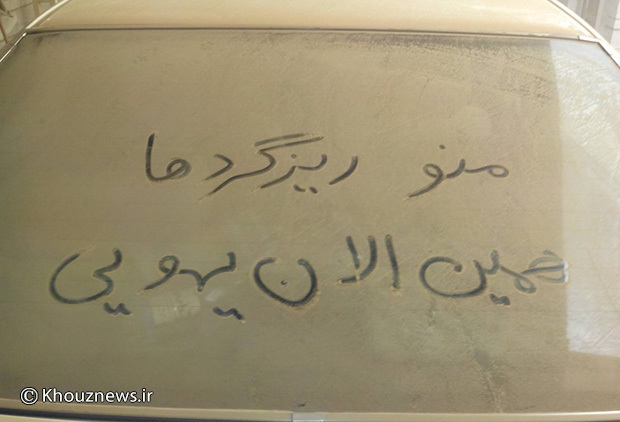 منو ریزگردها
همین الان یهویی
© Khouznews.ir